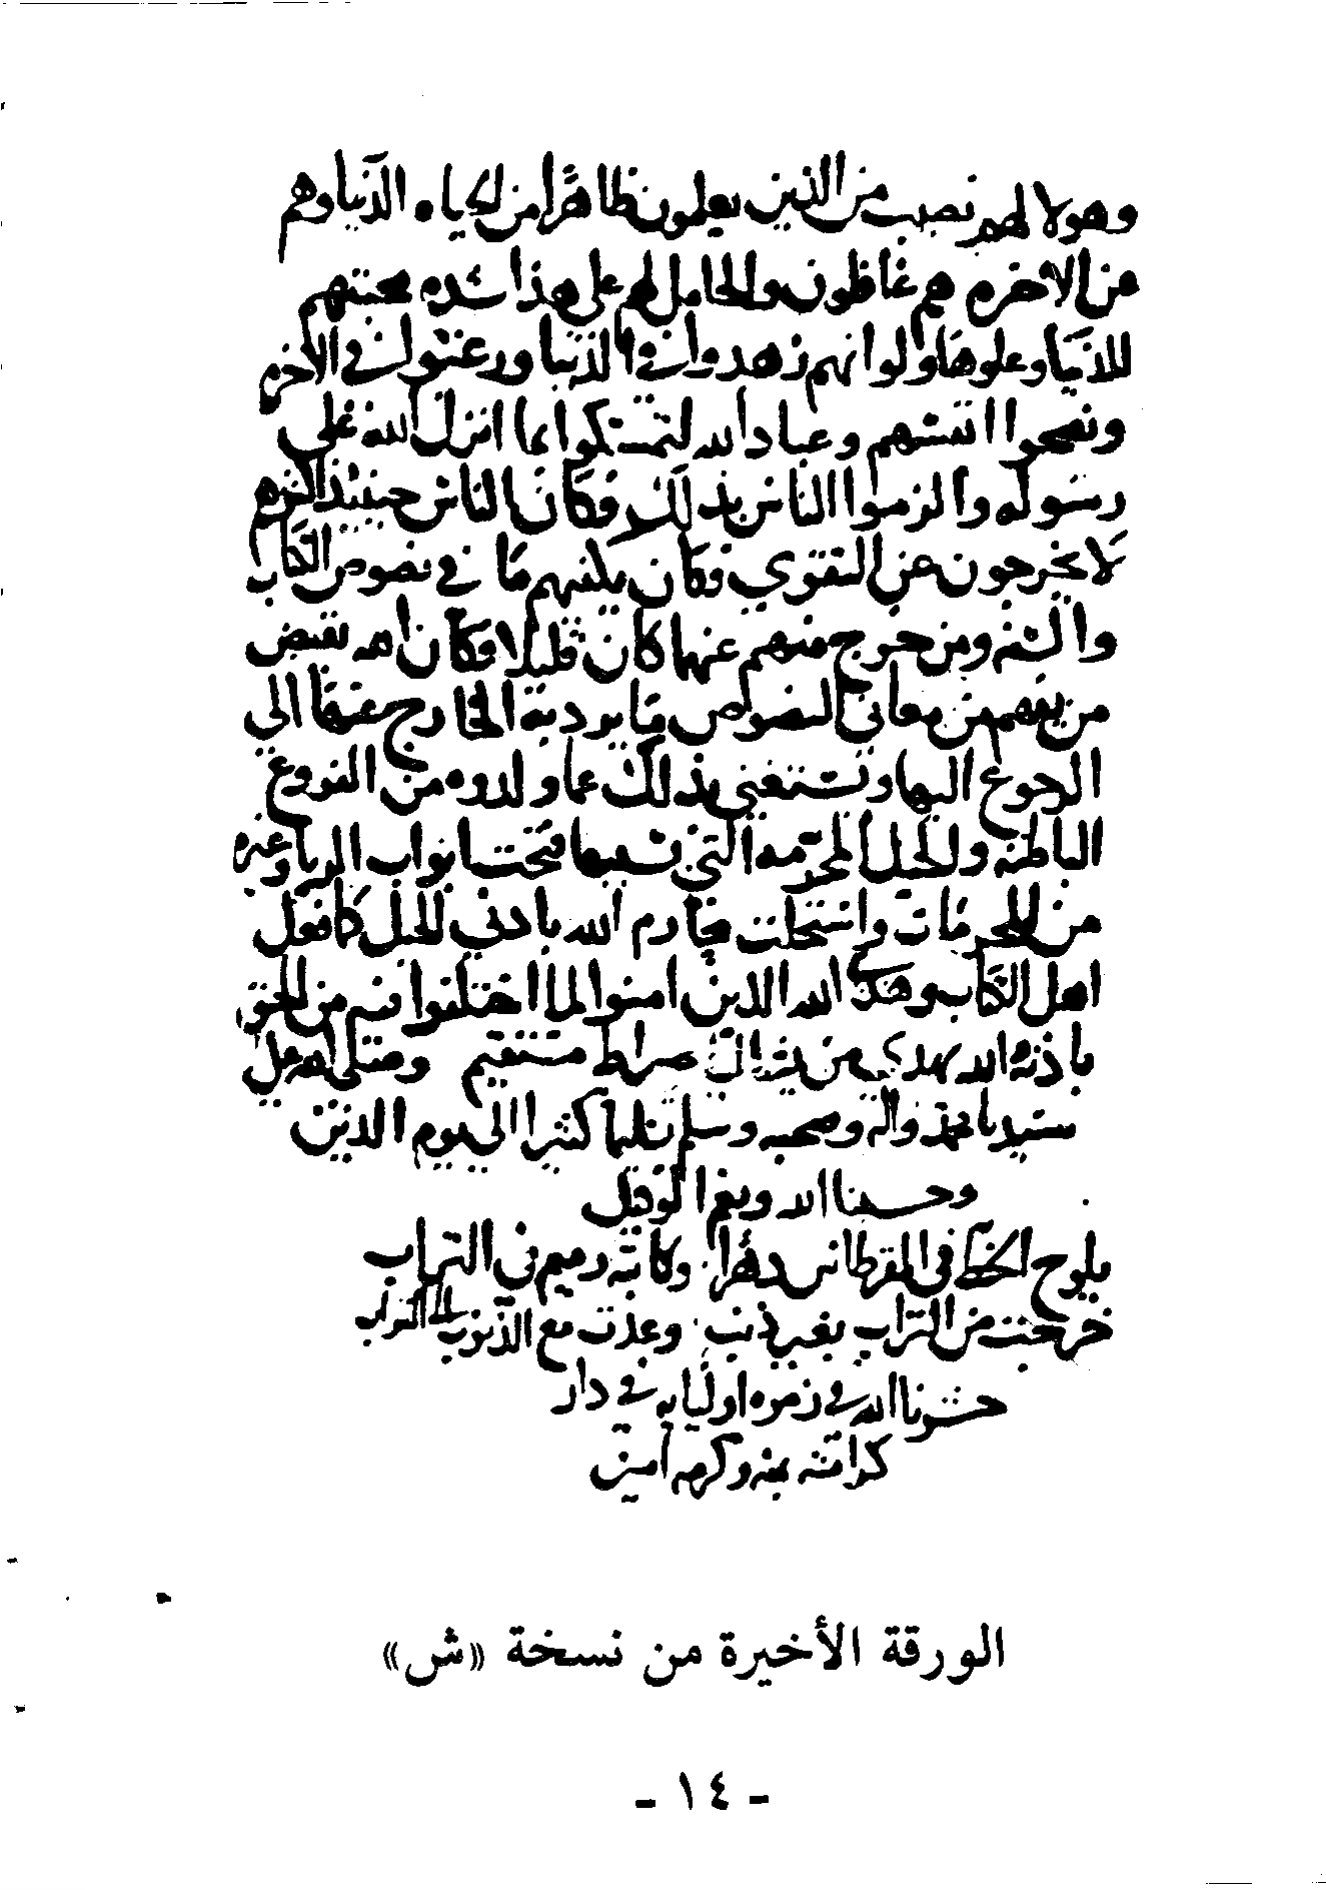 وهولا لهم نصيب من الذين يعلمون ظاهرًا من الحياه الدنيا وهم
عن الاخره هم غافلون والحامل لهم على هذا شده محبتهم
للدنيا وعلوها ولو انهم زهدوا في الدنيا ورغبوا في الاخره
ونصحوا انفسهم وعباد الله لتمسكوا بما انزل الله على
رسوله والزموا الناس بذلك فكان الناس حينيذ اكثرهم
لا يخرجون عن التقوي فكان يكفيهم ما في نصوص الكتاب
والسنه ومن خرج منهم عنها كان قليلا فكان الله يقيض
من يفهم من معاني النصوص ما يرد به الخارج عنها الي
الرجوع اليها ويستغني بذلك عما ولدوه من الفروع
الباطله والحيل المحرمه التي بسببها فتحت ابواب الربا وغيره
من المحرمات واستحلت محارم الله بادني الحيل كما فعل
اهل الكتاب وهدى الله الذين امنوا لما اختلفوا فيه من الحق
باذنه والله يهدي من يشا الى صراط مستقيم وصلى الله على
سيدنا محمد واله وصحبه وسلم تسليما كثيرا الي يوم الدين
وحسبنا الله ونعم الوكيل
يلوح الخط في القرطاس دهرا وكاتبه رميم في التراب
خرجت من التراب بغير ذنب وعدت مع الذنوب الى التراب
حشرنا الله في زمره اوليايه في دار
كرامته بمنه وكرمه امين
الورقة الأخيرة من نسخة «ش»
- ١٤ -